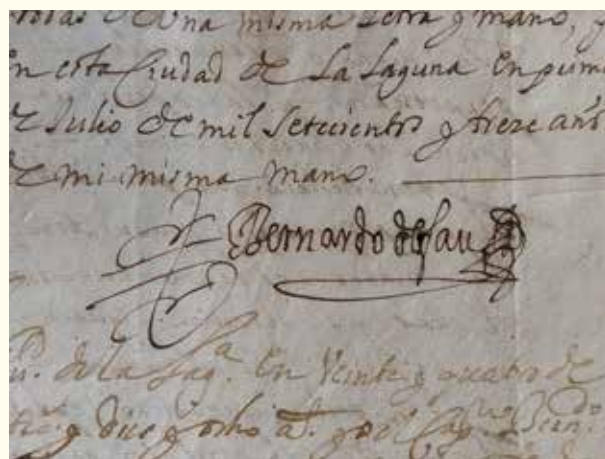 todas de una misma letra y mano, y
en esta Ciudad de La Laguna en primo
e Julio de mil Setecientos y treze años
e mi misma mano.
Bernardo de fau
de la Lag.ª En Veinte y quatro de
y diez y ocho a.s por el Cap.n Bern.do